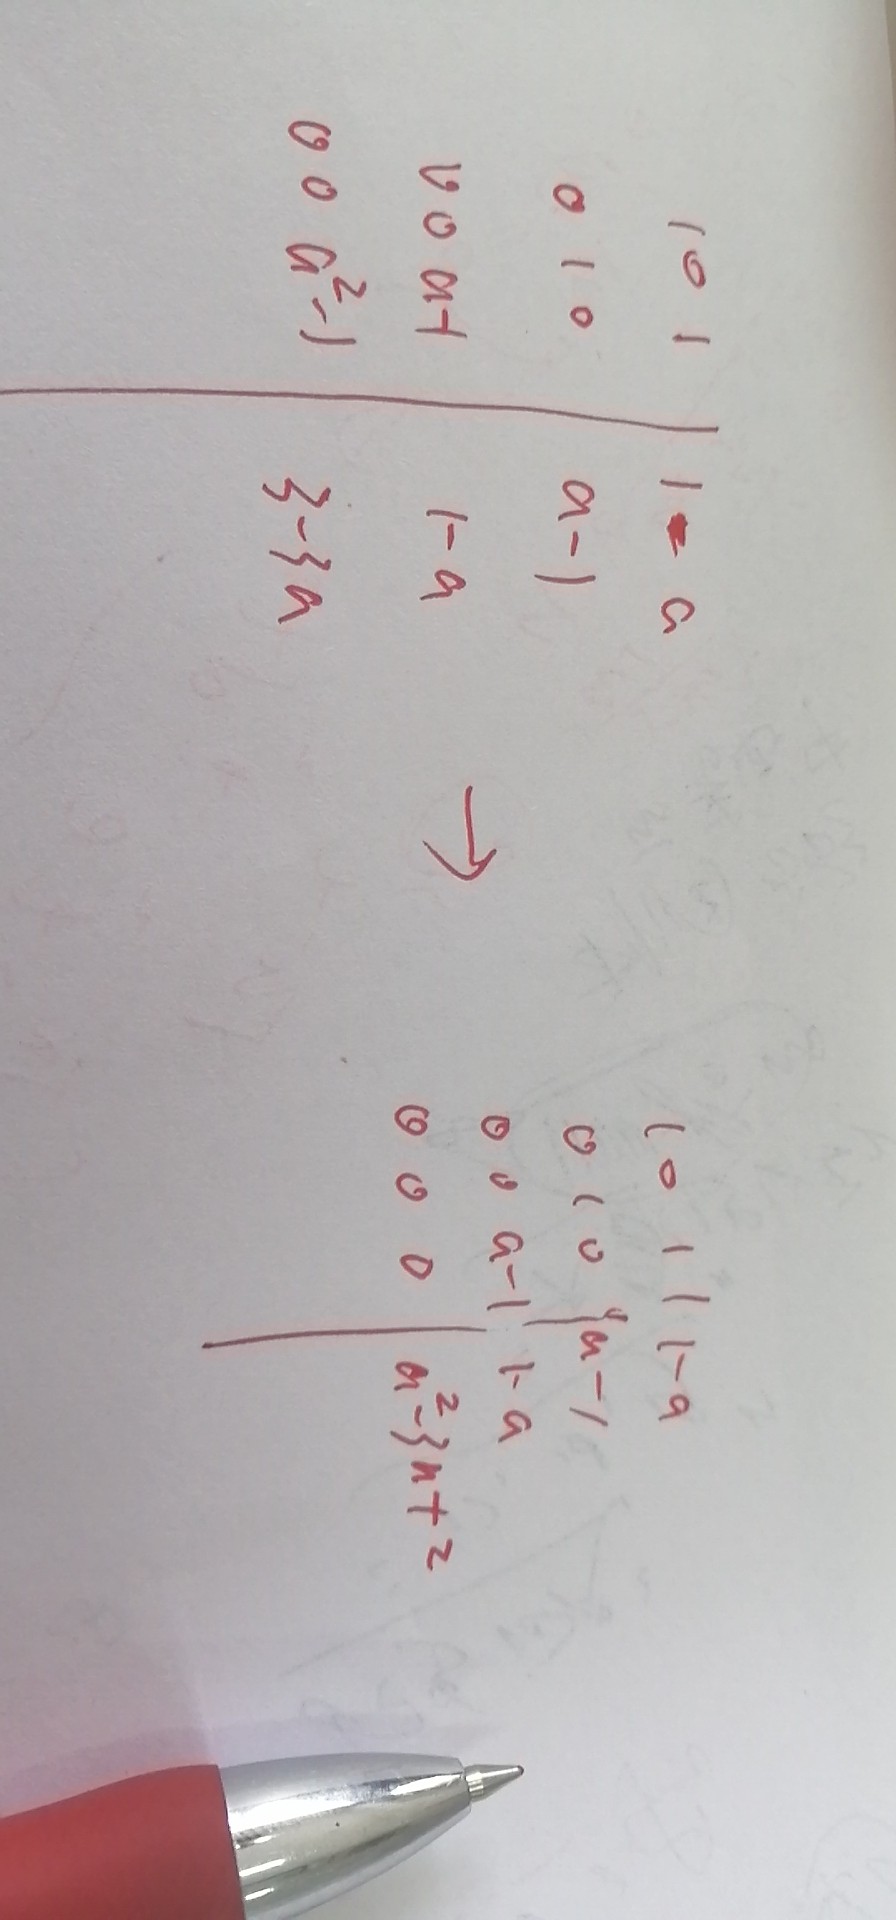 1 0 1 | 1 - a
0 1 0 | a-1
0 0 a-1 | 1-a
0 0 a²-1 | 3-3a
→
1 0 1 | 1-a
0 1 0 | a-1
0 0 a-1 | 1-a
0 0 0 | a²-3a+2